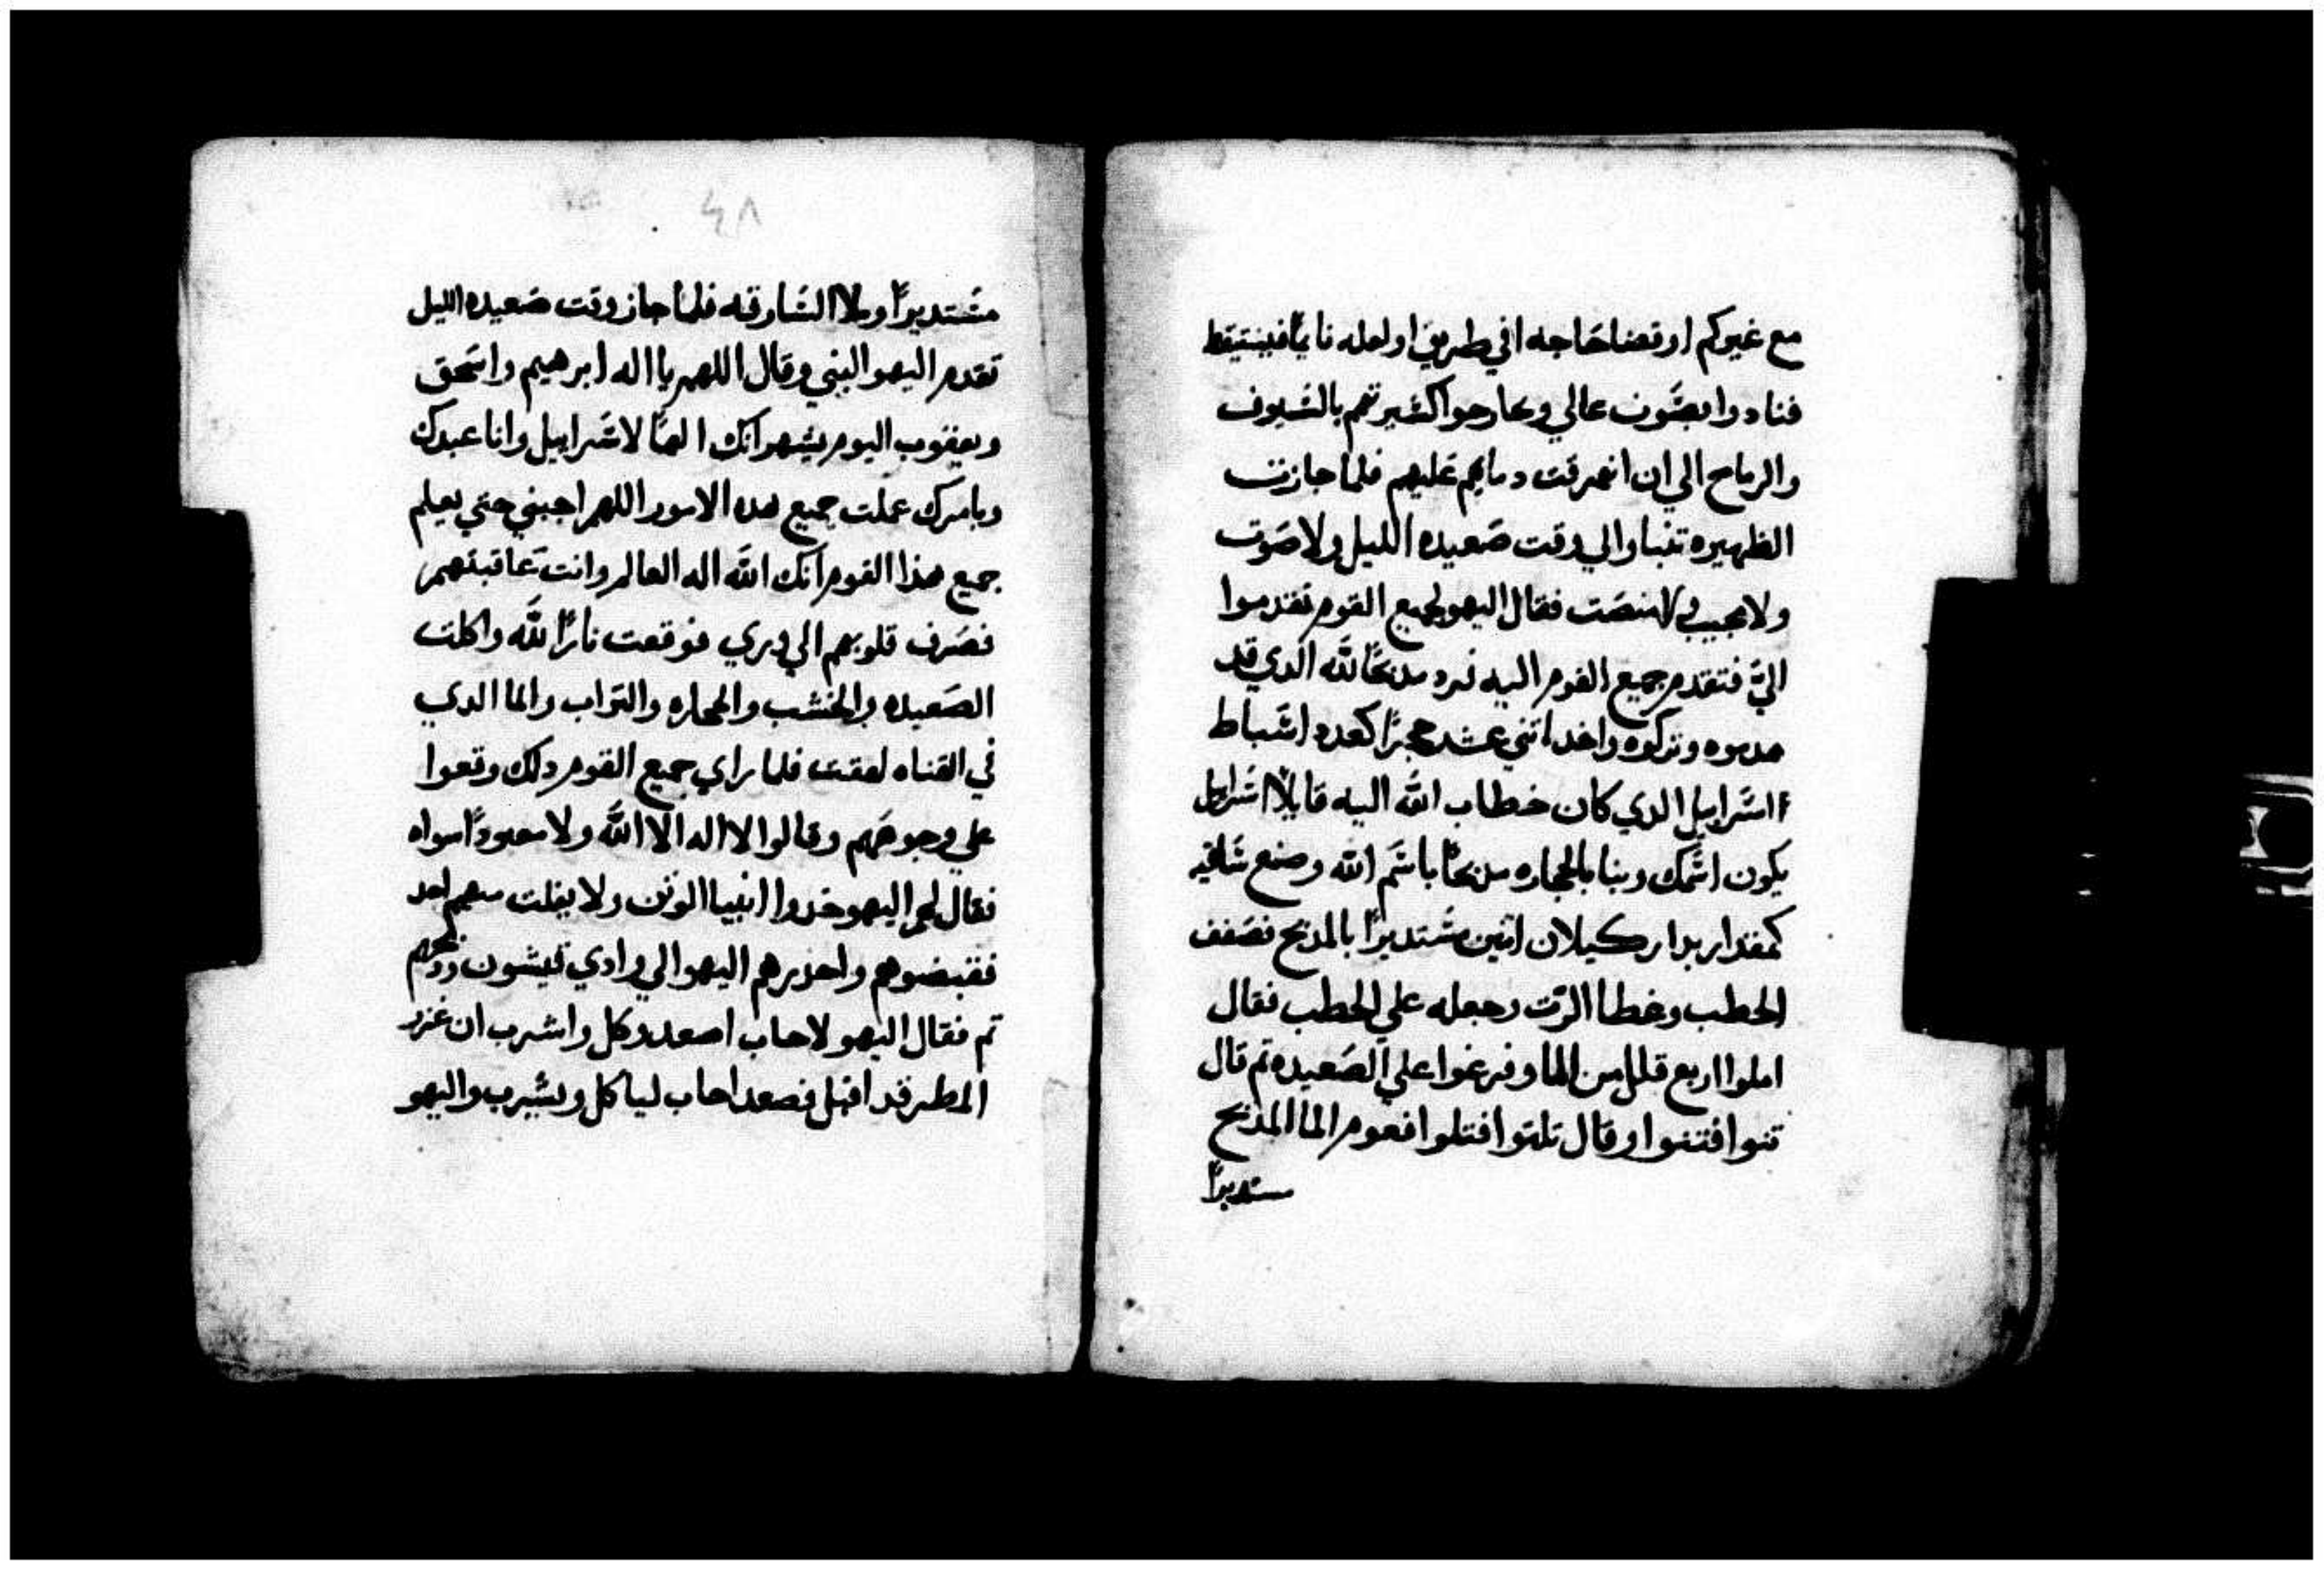 مع غيركم او قضا حاجه افي طريق او لعله نايمًا فيستيقظ
فنادوا بصَوت عالي وتجارحوا كشيرتهم بالسَيوف
والرماح الي ان انهرقت دمايهم عَليهم فلما جازت
الظهيره تنباوا الي وقت صَعيده الليل ولا صَوت
ولا مجيب ولا منصَت فقال اليهو لجميع القوم تقدموا
اليَّ فتقدم جميع القوم اليه فرد مذبحًا لله الدي قد
هدموه وتركوه واخد اتني عشر حجرًا كعدد اسَباط
اسَراييل الدي كان خطاب الله اليه قايلًا اسَراييل
يكون اسَمك وبنا بالحجاره مذبحًا باسَم الله وصنع سَاقيه
كمقدار بدار كيلان اتنين مسَتديرًا بالمذبح فصَفف
الحطب وغطا الرَت وجعله علي الحطب فقال
املوا اربع قلل من الما وفرغوا علي الصَعيده تم قال
تنوا فتنوا وقال تلتوا فتلتوا فعوم الما المذبح
مستديرًا
٤٨
مسَتديرًا وملا السَاوقه فلما جاز وقت صَعيده الليل
تقدم اليهو النبي وقال اللهم يا اله ابرهيم واسَحق
ويعقوب اليوم يشهر انك الهنا لاسَراييل وانا عبدك
وبامرك عملت جميع هده الامور اللهم اجبني حتي يعلم
جميع هذا القوم انك الله اله العالم وانت عَاقبتهم
فصَرف قلوبهم الي وري فوقعت نارًا لله واكلت
الصَعيده والخشب والحجاره والتراب والما الدي
في القناه لعقت فلما راي جميع القوم دلك وقعوا
علي وجوههم وقالوا لا اله الا الله ولا معبودًا سواه
فقال لهم اليهو خدوا انبيا الوتن ولا يفلت منهم احد
فقبضوهم واحذرهم اليهو الي وادي قيشون وذبحهم
تم فقال اليهو لاحاب اصعد وكل واشرب ان غزر
المطر قد اقبل فصعد احاب لياكل ويشرب واليهو